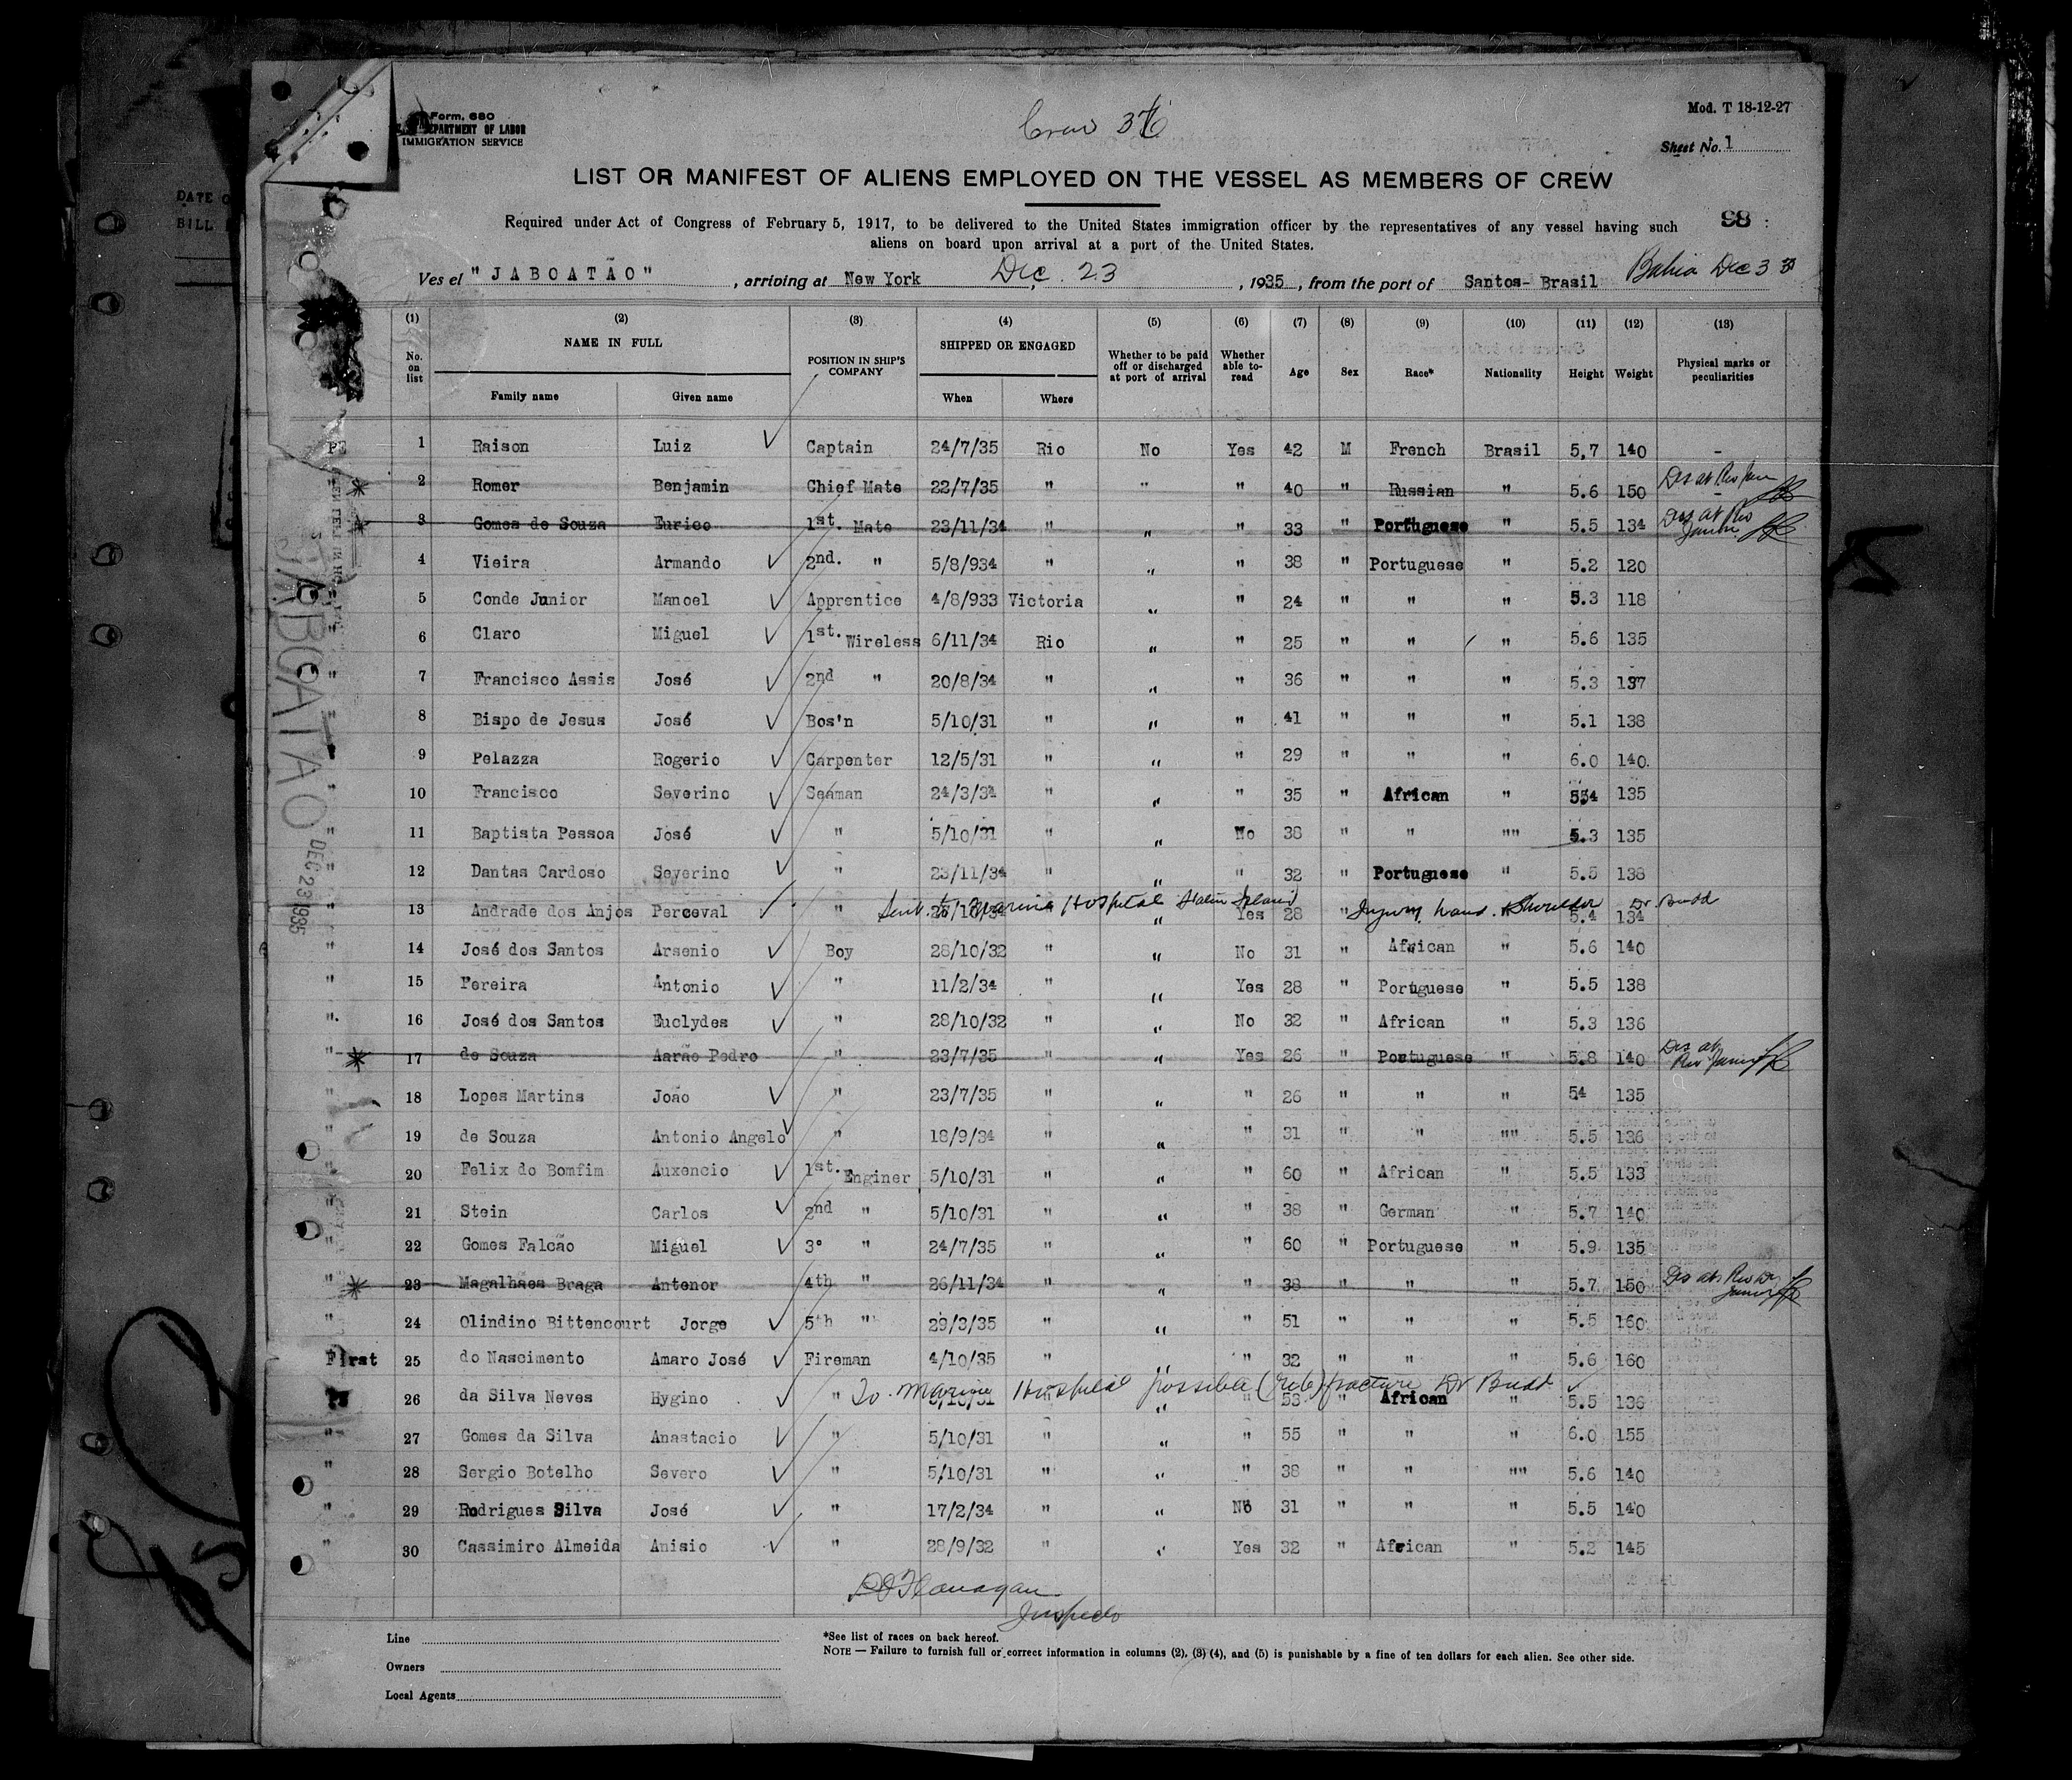 Form, 680
DEPARTMENT OF LABOR
IMMIGRATION SERVICE
Crew 36
Mod. T 18-12-27
Sheet No. 1
LIST OR MANIFEST OF ALIENS EMPLOYED ON THE VESSEL AS MEMBERS OF CREW
98
Required under Act of Congress of February 5, 1917, to be delivered to the United States immigration officer by the representatives of any vessel having such
aliens on board upon arrival at a port of the United States.
Ves el "JABOATÃO", arriving at New York Dec. 23, 1935, from the port of Santos- Brasil Bahia Dec 3
(1) (2) (3) (4) (5) (6) (7) (8) (9) (10) (11) (12) (13)
No. on list NAME IN FULL Family name Given name POSITION IN SHIP'S COMPANY SHIPPED OR ENGAGED When Where Whether to be paid off or discharged at port of arrival Whether able to read Age Sex Race* Nationality Height Weight Physical marks or peculiarities
1 Raison Luiz Captain 24/7/35 Rio No Yes 42 M French Brasil 5,7 140 -
2 Romer Benjamin Chief Mate 22/7/35 " " " 40 " Russian " 5.6 150 Des at Rio Jan
3 Gomes de Souza Eurico 1st. Mate 23/11/34 " " " 33 " Portuguese " 5.5 134 Des at Rio Janeiro
4 Vieira Armando 2nd. " 5/8/934 " " " 38 " Portuguese " 5.2 120
5 Conde Junior Manoel Apprentice 4/8/933 Victoria " " 24 " " " 5.3 118
6 Claro Miguel 1st. Wireless 6/11/34 Rio " " 25 " " " 5.6 135
7 Francisco Assis José 2nd " 20/8/34 " " " 36 " " " 5.3 137
8 Bispo de Jesus José Bos'n 5/10/31 " " " 41 " " " 5.1 138
9 Pelazza Rogerio Carpenter 12/5/31 " " " 29 " " " 6.0 140
10 Francisco Severino Seaman 24/3/34 " " " 35 " African " 5,4 135
11 Baptista Pessoa José " 5/10/31 " " No 38 " " "" 5.3 135
12 Dantas Cardoso Severino " 23/11/34 " " " 32 " Portuguese " 5.5 138
13 Andrade dos Anjos Perceval " " Yes 28 " 5.4 134
Sent to Marine Hospital Staten Island Injury hand & Shoulder Dr. Budd
14 José dos Santos Arsenio Boy 28/10/32 " " No 31 " African " 5.6 140
15 Pereira Antonio " 11/2/34 " " Yes 28 " Portuguese " 5.5 138
16 José dos Santos Euclydes " 28/10/32 " " No 32 " African " 5.3 136
17 de Souza Aarão Pedro " 23/7/35 " " Yes 26 " Portuguese " 5.8 140 Des at Rio Janeiro
18 Lopes Martins João " 23/7/35 " " " 26 " " " 54 135
19 de Souza Antonio Angelo " 18/9/34 " " " 31 " " "" 5.5 136
20 Felix do Bomfim Auxencio 1st. Enginer 5/10/31 " " " 60 " African " 5.5 133
21 Stein Carlos 2nd " 5/10/31 " " " 38 " German " 5.7 140
22 Gomes Falcão Miguel 3° " 24/7/35 " " " 60 " Portuguese " 5.9 135
23 Magalhaes Braga Antenor 4th " 26/11/34 " " " 38 " " " 5.7 150 Des at Rio Janeiro
24 Olindino Bittencourt Jorge 5th " 29/3/35 " " " 51 " " " 5.5 160
First 25 do Nascimento Amaro José Fireman 4/10/35 " " " 32 " " " 5.6 160
26 da Silva Neves Hygino " 5/10/31 " " " 53 " African " 5.5 136
To Marine Hospital possible (rib) fracture Dr Budd
27 Gomes da Silva Anastacio " 5/10/31 " " " 55 " " " 6.0 155
28 Sergio Botelho Severo " 5/10/31 " " " 38 " " "" 5.6 140
29 Rodrigues Silva José " 17/2/34 " " No 31 " " " 5.5 140
30 Cassimiro Almeida Anisio " 28/9/32 " " Yes 32 " African " 5.2 145
Flanagan
Inspector
Line
Owners
Local Agents
*See list of races on back hereof.
NOTE — Failure to furnish full or correct information in columns (2), (3) (4), and (5) is punishable by a fine of ten dollars for each alien. See other side.
JABOATAO
DEC 23 1935
DATE O
BILL